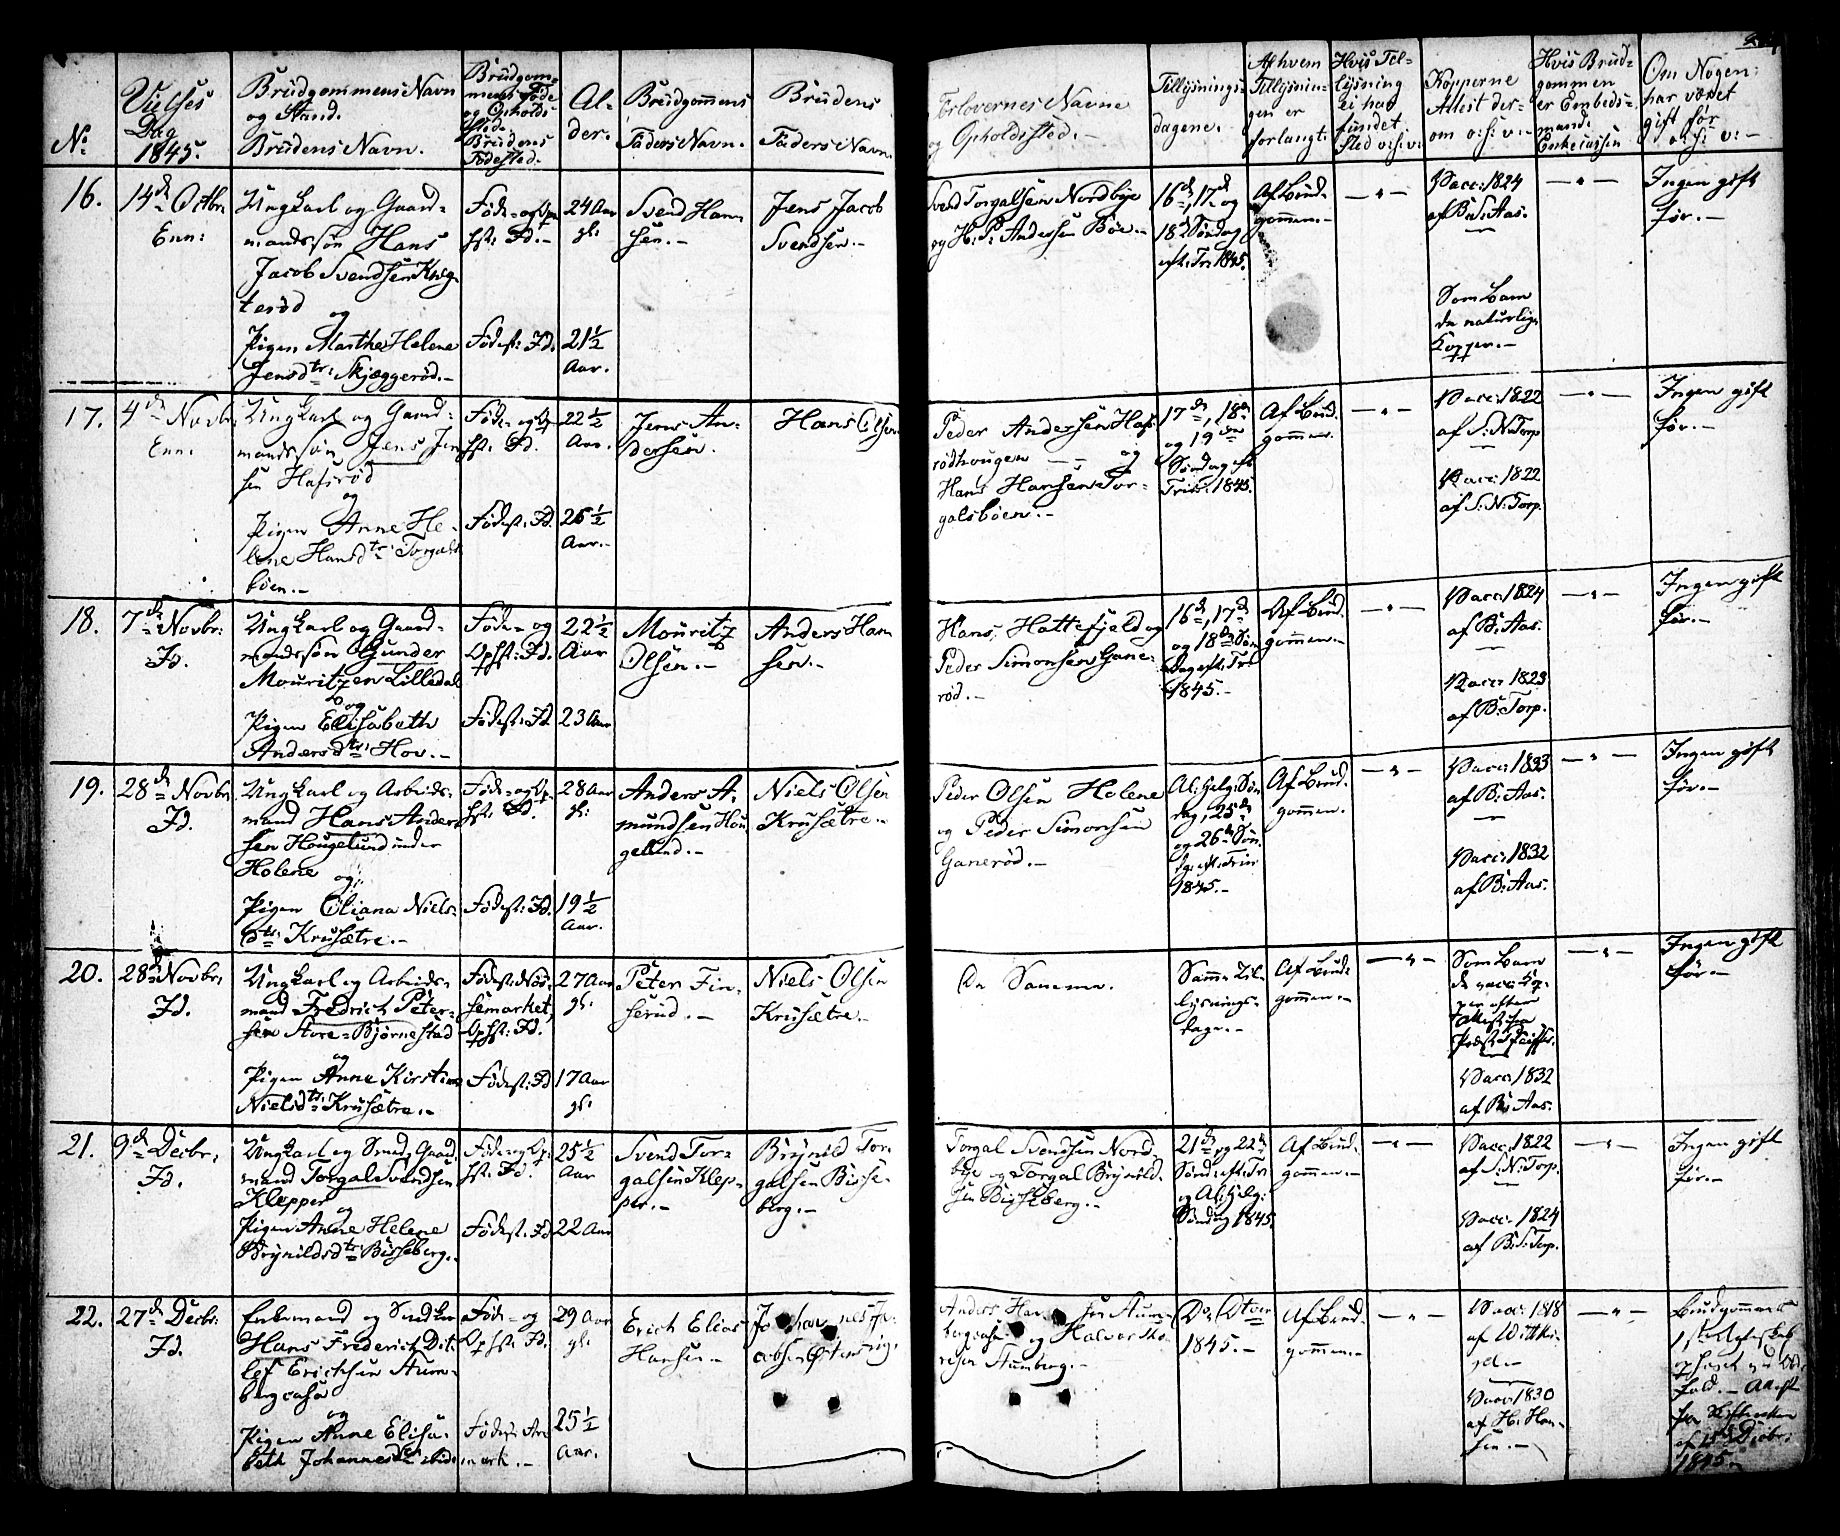 No
Vielses
Dag
1845.
Brudgommens Navn
og Stand.
Brudens Navn.
Brudgom-
mens Føde
og Opholds
Sted.
Brudens
Fødested.
Al-
der.
Brudgommens
Faders Navn.
Brudens
Faders Navn.
Forlovernes Navne
og Opholdssted.
Tillysnings-
dagene.
Af hvem
Tillysnin-
gen er
forlangt.
Hvis Til-
lysning
ei har
fundet
Sted o:s:v:
Kopperne
Attest der-
om o:s:v:
Hvis Brud-
gommen
er Embeds-
mand.
Enkecassen
Om Nogen
har været
gift før
o:s:v:
16.
14de Octbr:
Enn:
Ungkarl og Gaard-
mandssøn Hans
Jacob Svendsen
terød
og
Pigen Marthe Helene
Jensdtr: Skjæggerød.
Føde- og Op-
hst: Id.
Fødest: Id.
24 Aar
gl:
21½
Aar.
Svend Han-
sen.
Jens Jacob
Svendsen.
Svend Torgalsen Nordbye
og H: P: Andersen Bøe.
16de, 17de og
18de Søndag
eft: Tr: 1845.
Af Brud-
gommen.
Vacc: 1824
af B: S: Aas.
Som Barn
de naturlige
Kopper.
Ingen gift
før.
17.
4de Novbr:
Enn:
Ungkarl og Gaard-
mandssøn Jens Jen-
sen Hafsrød
og
Pigen Anne He-
lene Hansdtr: Torgals-
bøen.
Føde- og Op-
hst: Id.
Fødest: Id.
22½
Aar.
26½
Aar.
Jens An-
dersen.
Hans Olsen
Peder Andersen Hafs-
rødhougen og
Hans Hansen Tor-
galsbøen.
17de, 18de
og 19de
Søndag eft
Trin: 1845.
Af Brud-
gommen.
Vacc: 1822
af S: N: Torp
Vacc: 1822
af S: N: Torp.
Ingen gift
før.
18.
7de Novbr:
Id.
Ungkarl og Gaard-
mandssøn Gunder
Mouritzen Lilledal
og
Pigen Elisabeth
Andersdtr: Hov.
Føde- og
Ophst: Id.
Fødest: Id
22½
Aar
23 Aar
Mouritz
Olsen.
Anders Han-
sen.
Hans Hattefjeld og
Peder Simonsen Gane-
rød.
16de, 17de
og 18de Søn-
dag eft: Tr:
1845.
Af Brud-
gommen.
Vacc: 1824
af B: Aas.
Vacc: 1823
af B: Torp.
Ingen gift
før.
19.
28de Novbr:
Id.
Ungkarl og Arbeids-
mand Hans Ander-
sen Hougelund under
Holene og
Pigen Oliana Niels-
dtr: Krusætre.
Føde- og Op-
hst: Id.
Fødest: Id.
28 Aar
gl:
19½
Aar.
Anders A-
mundsen Hou-
gelund.
Niels Olsen
Krusætre.
Peder Olsen Holene
og Peder Simonsen
Ganerød.
Al: Helg: Søn-
dag, 25de
og 26de Søn-
dg: eft: Trin
1845.
Af Brud-
gommen.
Vacc: 1833
af B: Aas.
Vacc: 1832
af B: Aas.
Ingen gift
før.
20.
28de Novbr:
Id.
Ungkarl og Arbeids-
mand Fredrich Peter-
sen Store-Bjørnestad
og
Pigen Anne Kirstine
Nielsdtr: Krusætre.
Fødest: Nøs-
semarket,
Ophst: Id.
Fødest: Id
27 Aar
gl:
17 Aar
gl:
Peter Fin-
serud.
Niels Olsen
Krusætre.
De Samme.
Samme Til-
lysnings-
dage.
Af Brud-
gommen.
Som Barn
de Kop-
per efter
Attest fra
Præst
Vacc: 1832
af B: Aas.
Ingen gift
før.
21.
9de Decbr:
Id.
Ungkarl og Smed, Gaard-
mand Torgal Svendsen
Klepper
og
Pigen Anne Helene
Brynildsdtr: Bisseberg.
Føde- og Op-
hst: Id.
Fødest: Id
25½
Aar
22 Aar
Svend Tor-
galsen Klep-
per.
Brynild Tor-
galsen Bisse-
berg.
Torgal Svendsen Nord-
bye og Torgal Brynild-
sen Bisseberg.
21de og 22de
Sønd: eft: Tr:
og Al: Helg:
Søndag 1845
Af Brud-
gommen.
Vacc: 1822
af S: N: Torp.
Vacc: 1824
af B: S: Torp.
Ingen gift
før.
22.
27de Decbr:
Id.
Enkemand og Snedker
Hans Frederich Dit-
lef Erichsen Stum-
bergcasa
og
Pigen Anne Elisa-
beth Johannesdtr ibid:
Føde- og
Ophst: Id.
Fødest: Are-
mark.
29 Aar
gl:
25½
Aar.
Erich Elias
Hansen
Johannes Ja-
cobsen
Anders Stum-
bergcasa og Halvor
Stumberg.
1845.
Af Brud-
gommen.
Vacc: 1818
af
Vacc: 1830
af H: Han-
sen.
Brudgommens
1ste Ægteskab
Attest
fra Skifteretten
af 15de Decbr:
1845.